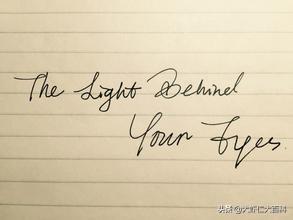 The Light Behind
Your Eyes.
头条@大虾仁大百科